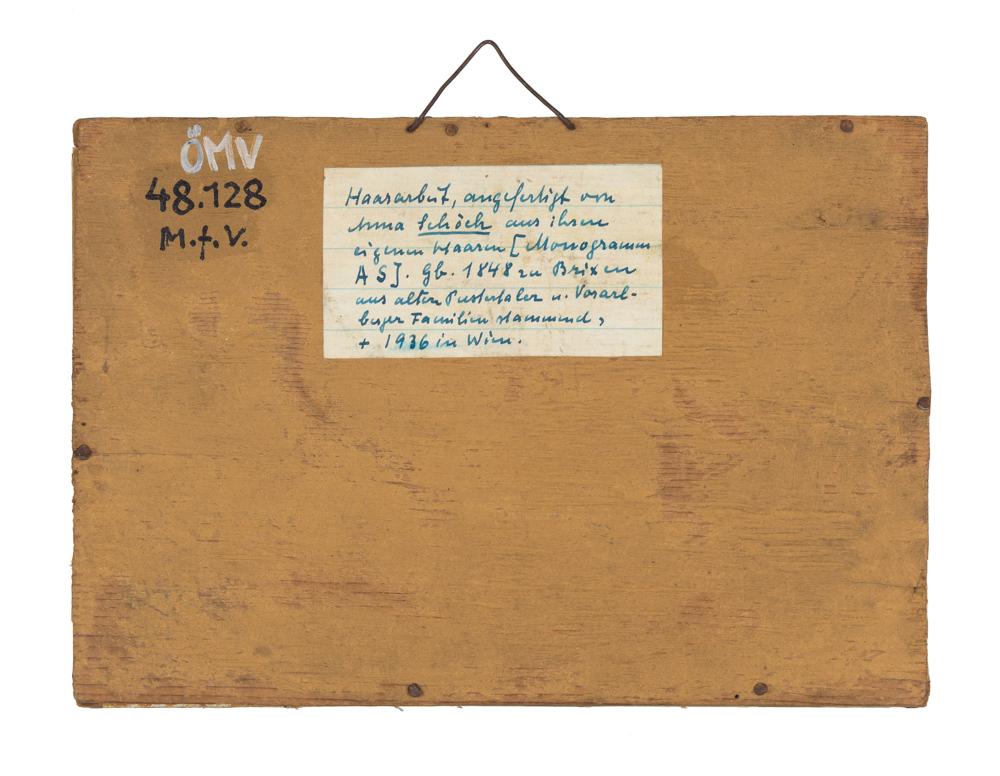 ÖMV
48.128
M.f.V.
Haararbeit, angefertigt von
Anna Schöch aus ihren
eigenen Haaren [Monogramm
AS]. Gb. 1848 zu Brixen
aus alten Pustertaler u. Vorarl-
berger Familien stammend,
+ 1936 in Wien.